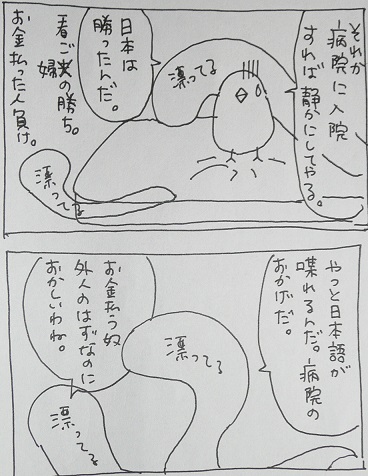 それか
病院に入院
すれば静かにしてやる。
漂ってる
日本は
勝ったんだ。
看ご婦の勝ち。
お金払った人負け。
漂ってる
やっと日本語が
喋れるんだ。病院の
おかげだ。
漂ってる
お金払う奴
外人のはずなのに
おかしいわね。
漂ってる